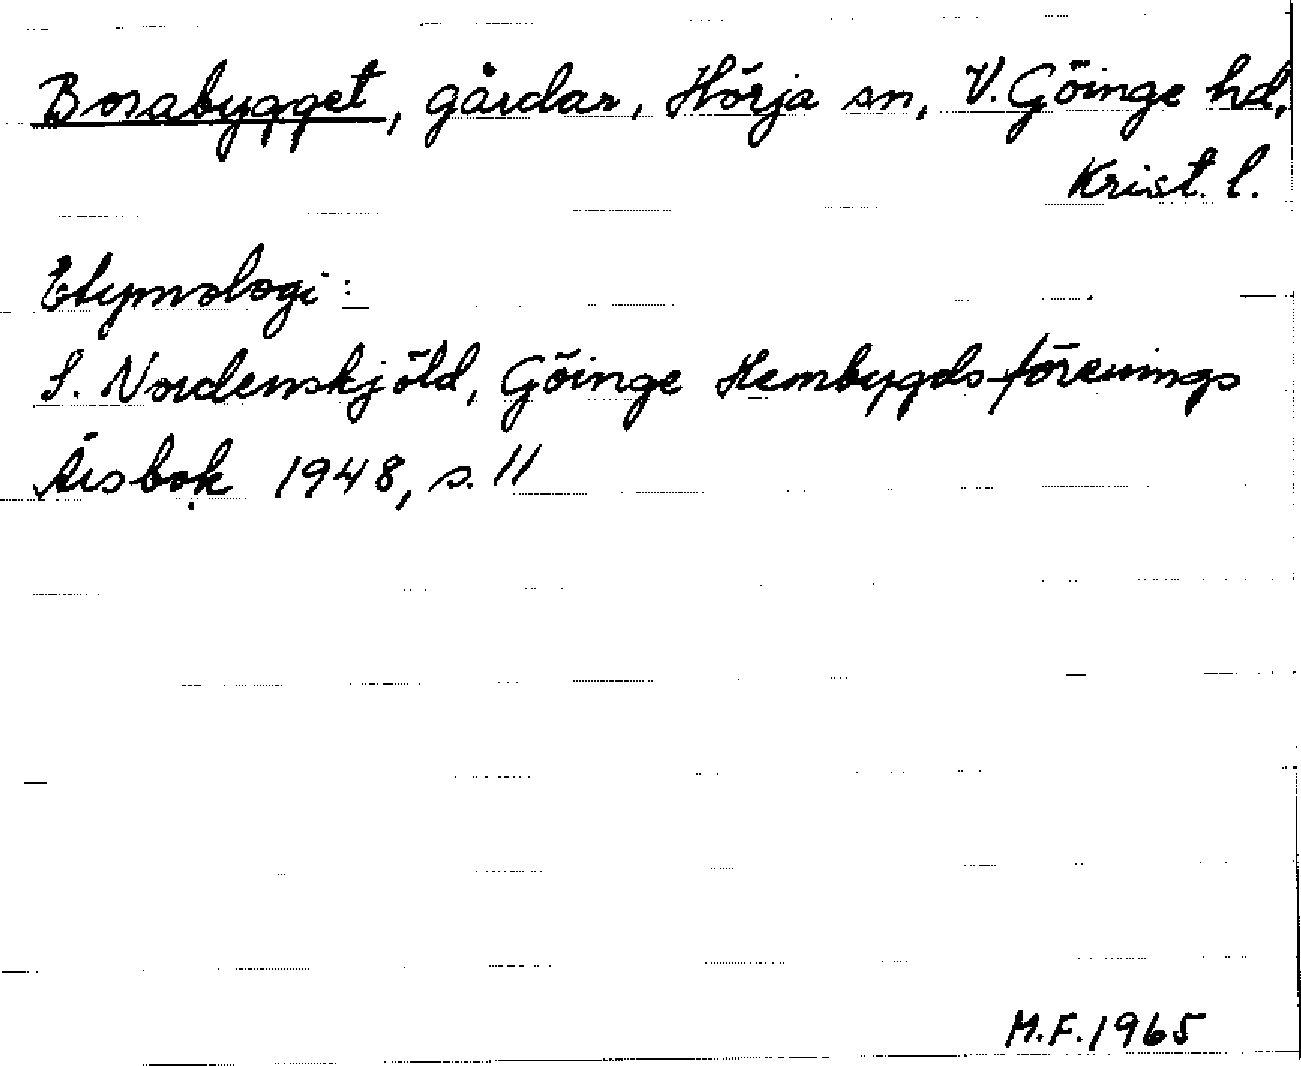 Bosabygget, gårdar, Hörja sn, V. Göinge hd,
Krist. l.
Etymologi:
S. Nordenskjöld, Göinge Hembygdsförenings
Årsbok 1948, s. 11
M.F. 1965